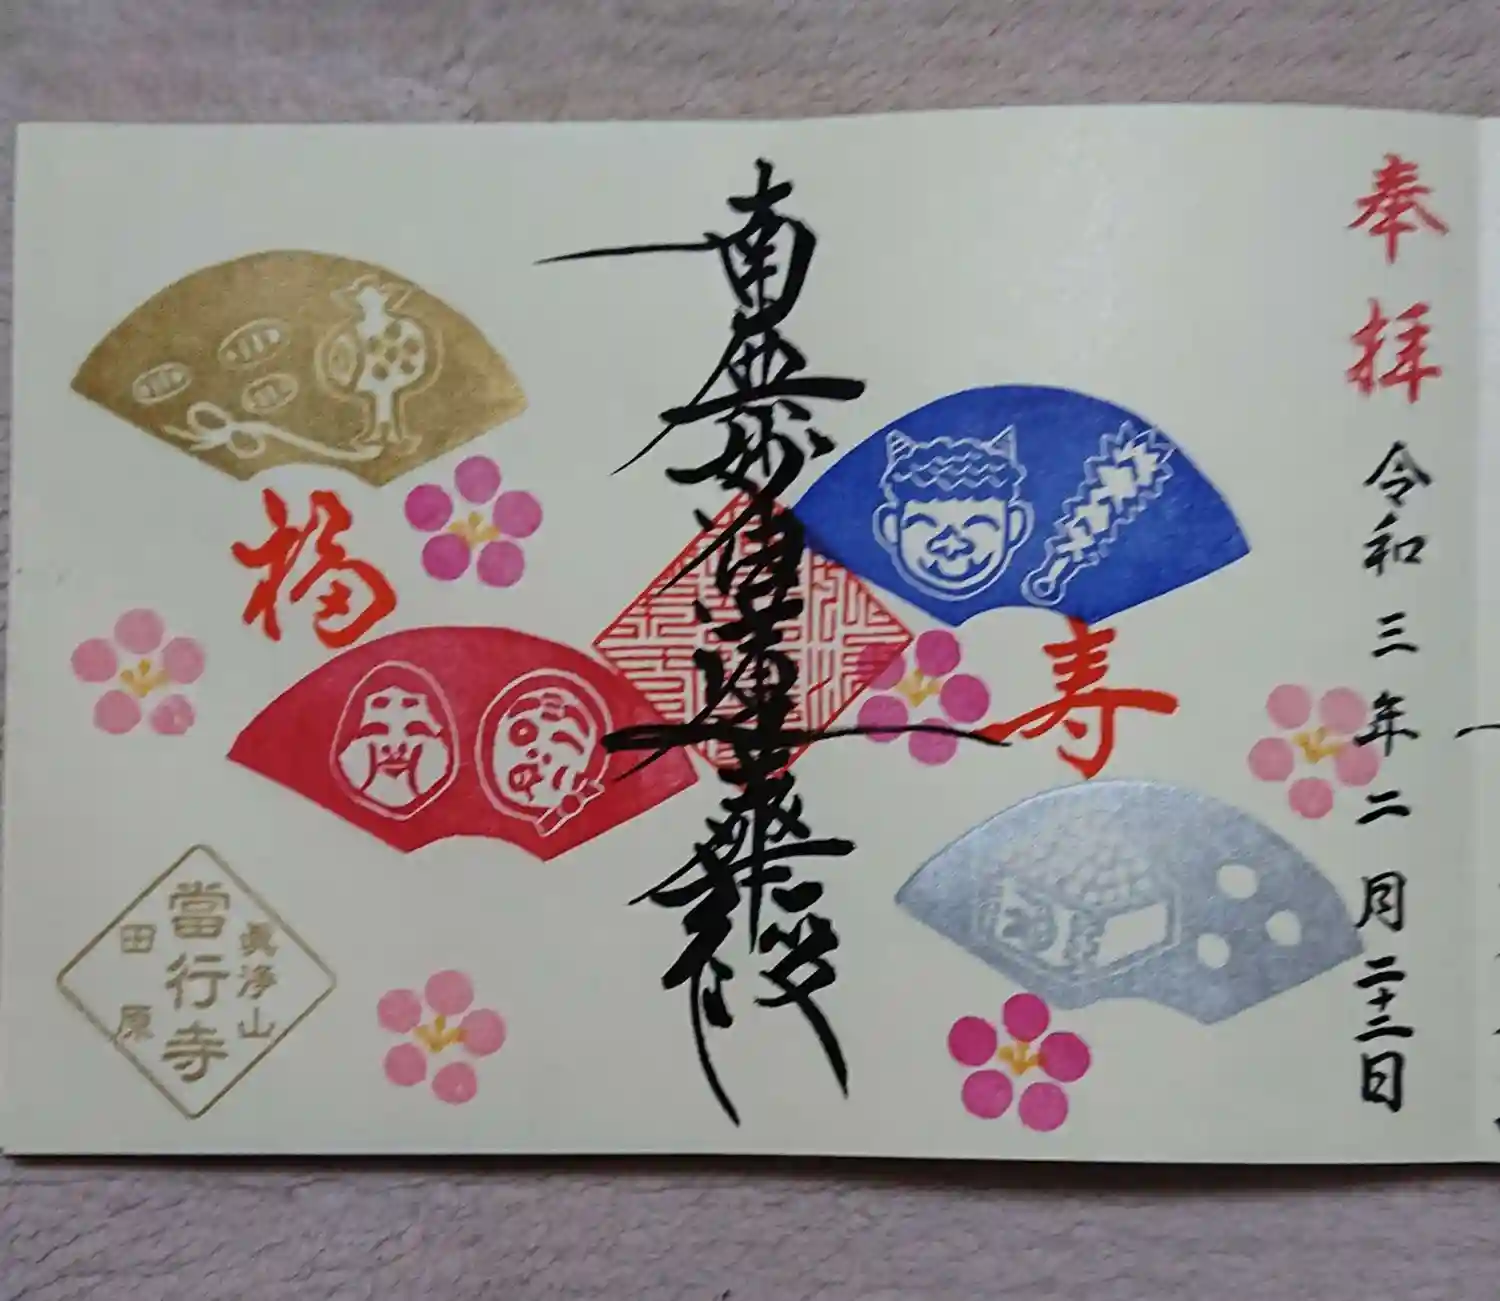 奉拝
令和三年二月二十二日
寿
南無妙法蓮華経
福
眞淨山
當行寺
田原